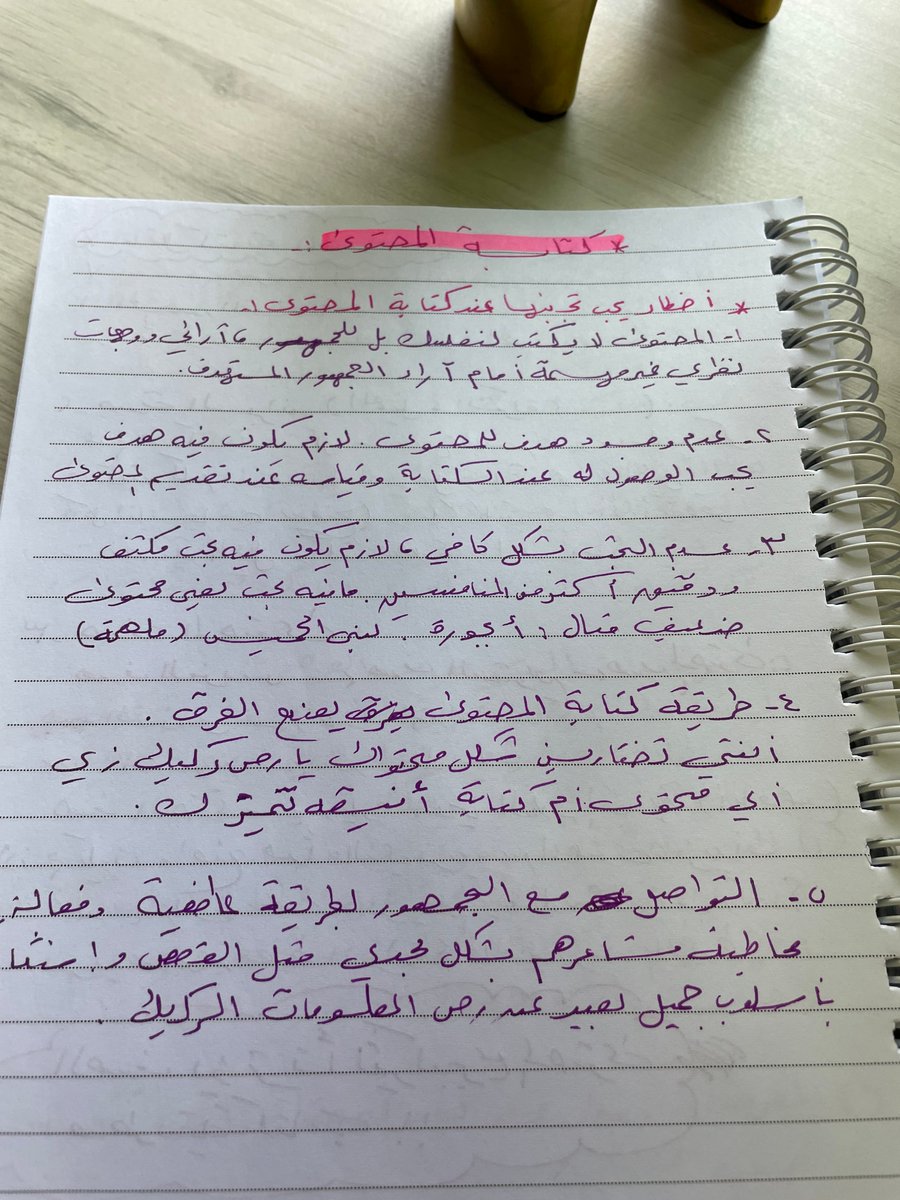 * كتابة المحتوى :
* أخطاء يجب تجنبها عند كتابة المحتوى :
١- المحتوى لا يكتب لنفسك بل للجمهور ، آرائي ووجهات
نظري غير مهمة أمام آراء الجمهور المستهدف .
٢- عدم وجود هدف للمحتوى . لازم يكون فيه هدف
يجب الوصول له عند الكتابة وقياسه عند تقديم المحتوى
٣- عدم البحث بشكل كافي ، لازم يكون فيه بحث مكثف
ودقيق أكثر من المنافسين . مافيه بحث يعني محتوى
ضعيف مثال : أعجورة . (ملهمة)
٤- طريقة كتابة المحتوى يصنع الفرق .
أنتي تختارين شكل محتواك يا رص ركيك زي
أي محتوى أم كتابة أنيقه تميزك .
٥- التواصل مع الجمهور بطريقة عاطفية وفعالة
مخاطبة مشاعرهم بشكل مجدي مثل القصص
بأسلوب جميل بعيد عن رص المعلومات الركيك .